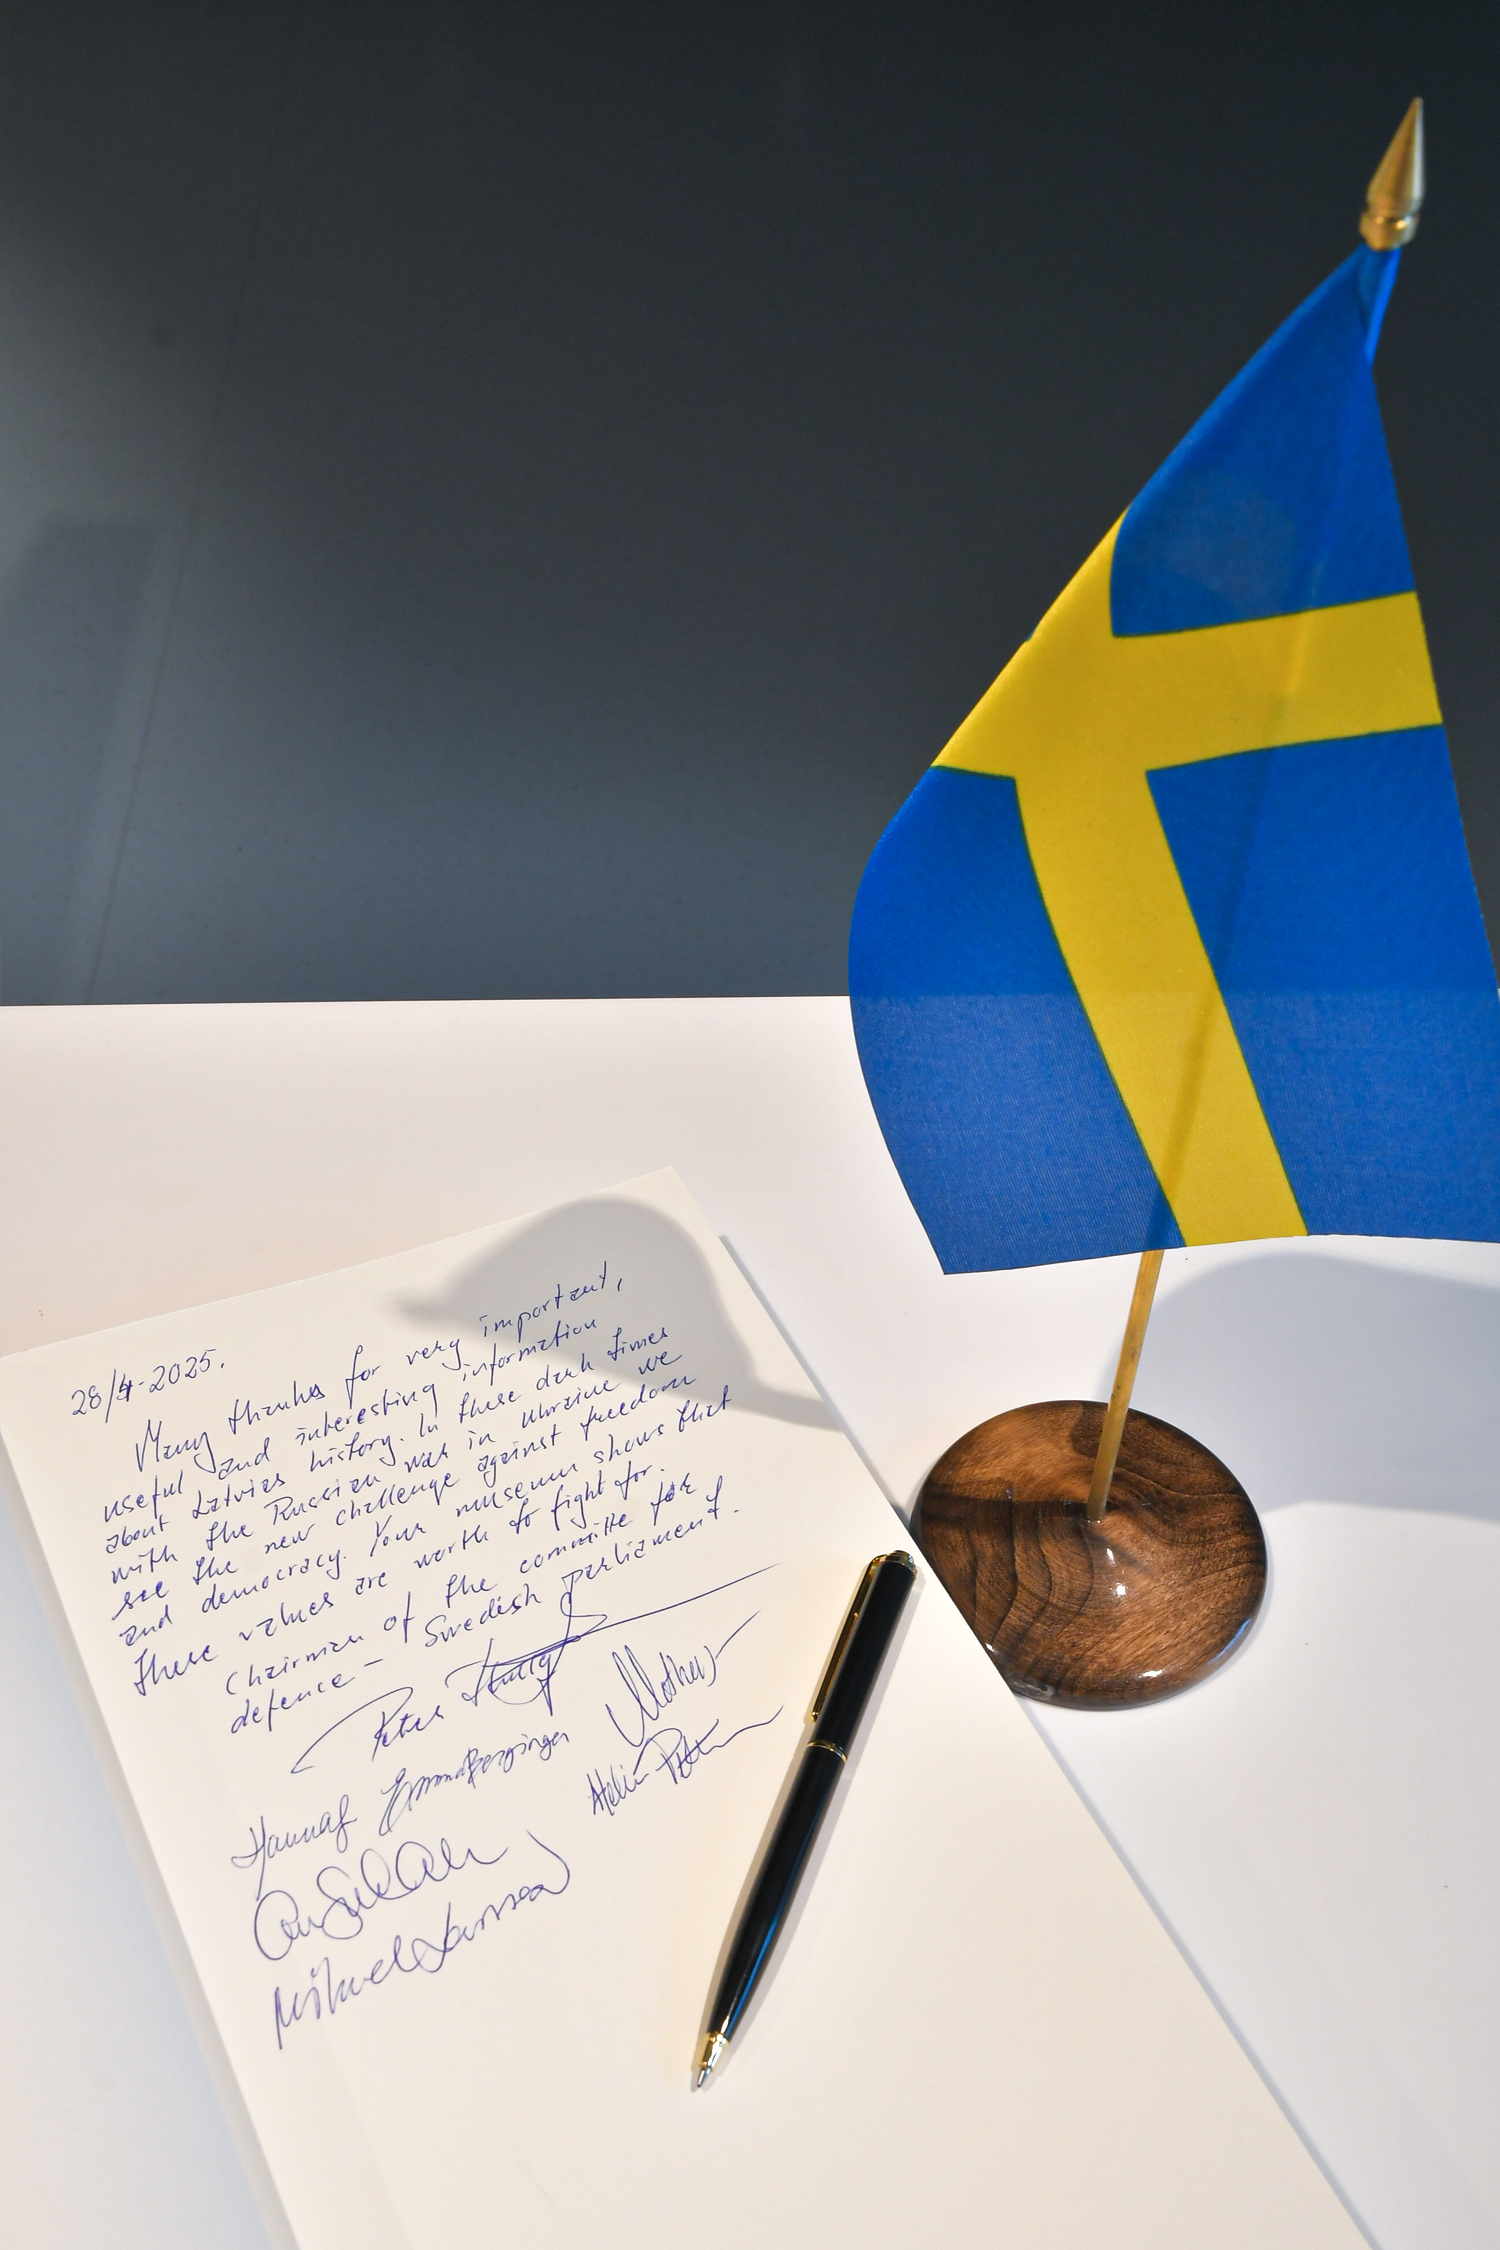 28/4-2025.
Many thanks for very important,
useful and interesting information
about Latvias history. In these dark times
with the Russian war in Ukraine we
see the new challenge against freedom
and democracy. Your museum shows that
these values are worth to fight for.
Chairman of the committe for
defence – Swedish parliament.
Peter
Hannah Emma Berginger
Helén
Mikael Larsson